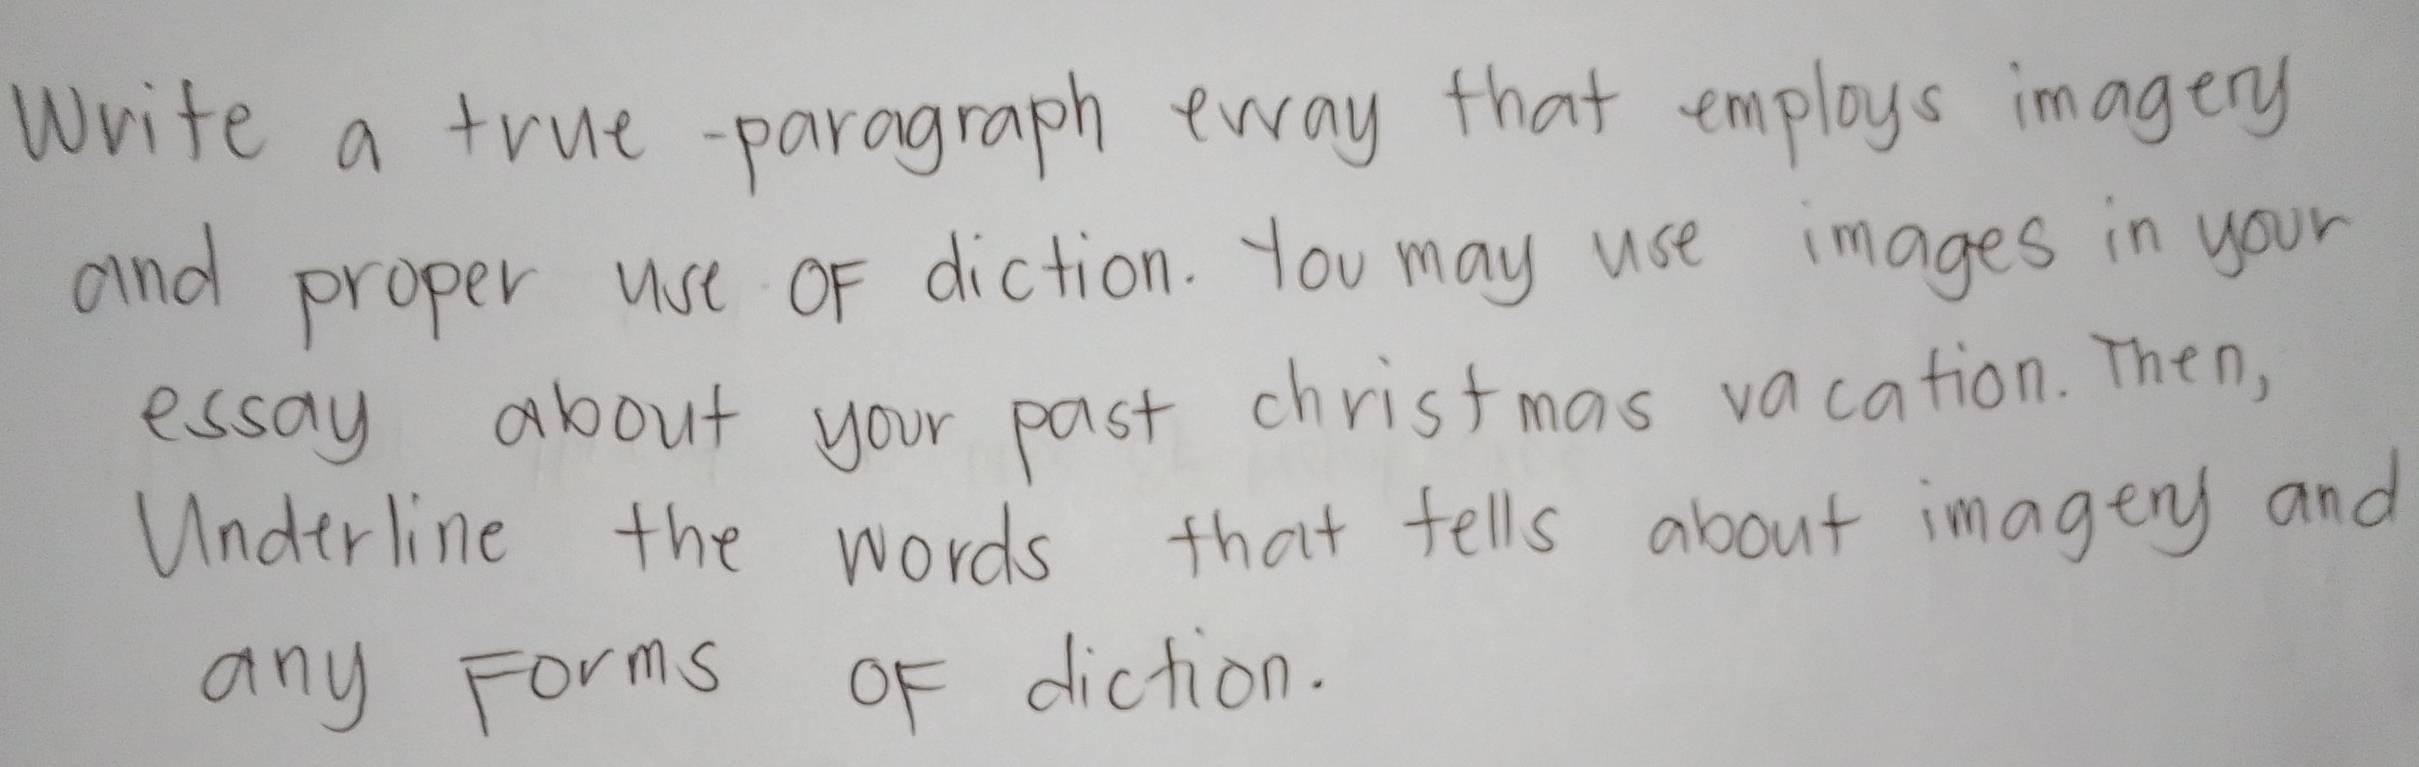 Write a true-paragraph essay that employs imagery
and proper use OF diction. You may use images in your
essay about your past christmas vacation. Then,
Underline the words that tells about imagery and
any Forms OF diction.